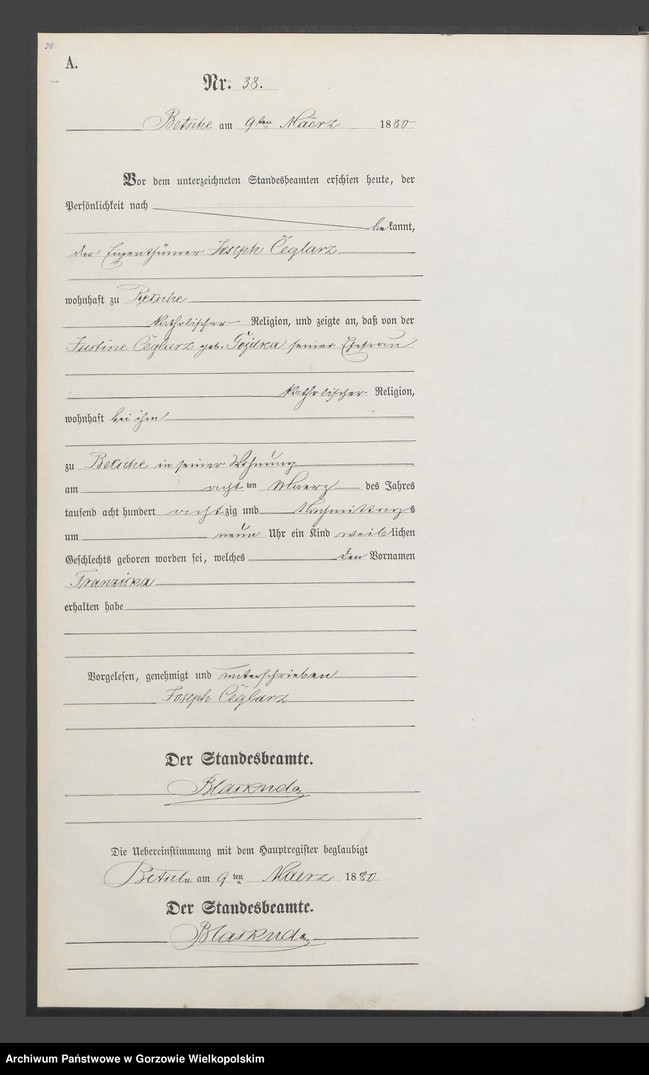 28
A.
Nr. 38.
Betsche am 9ten Maerz 1880
Vor dem unterzeichneten Standesbeamten erschien heute, der
Persönlichkeit nach
bekannt,
der Eigenthümer Joseph Ceglarz
wohnhaft zu Betsche
katholischer Religion, und zeigte an, daß von der
Justine Ceglarz geb. seiner Ehefrau
katholischer Religion,
wohnhaft bei ihm
zu Betsche in seiner Wohnung
am achtten Maerz des Jahres
tausend acht hundert achtzig und Nachmittags
um neun Uhr ein Kind weiblichen
Geschlechts geboren worden sei, welches den Vornamen
Franziska
erhalten habe
Vorgelesen, genehmigt und unterschrieben
Joseph Ceglarz
Der Standesbeamte.
Die Uebereinstimmung mit dem Hauptregister beglaubigt
Betsche am 9ten Maerz 1880
Der Standesbeamte.
Archiwum Państwowe w Gorzowie Wielkopolskim